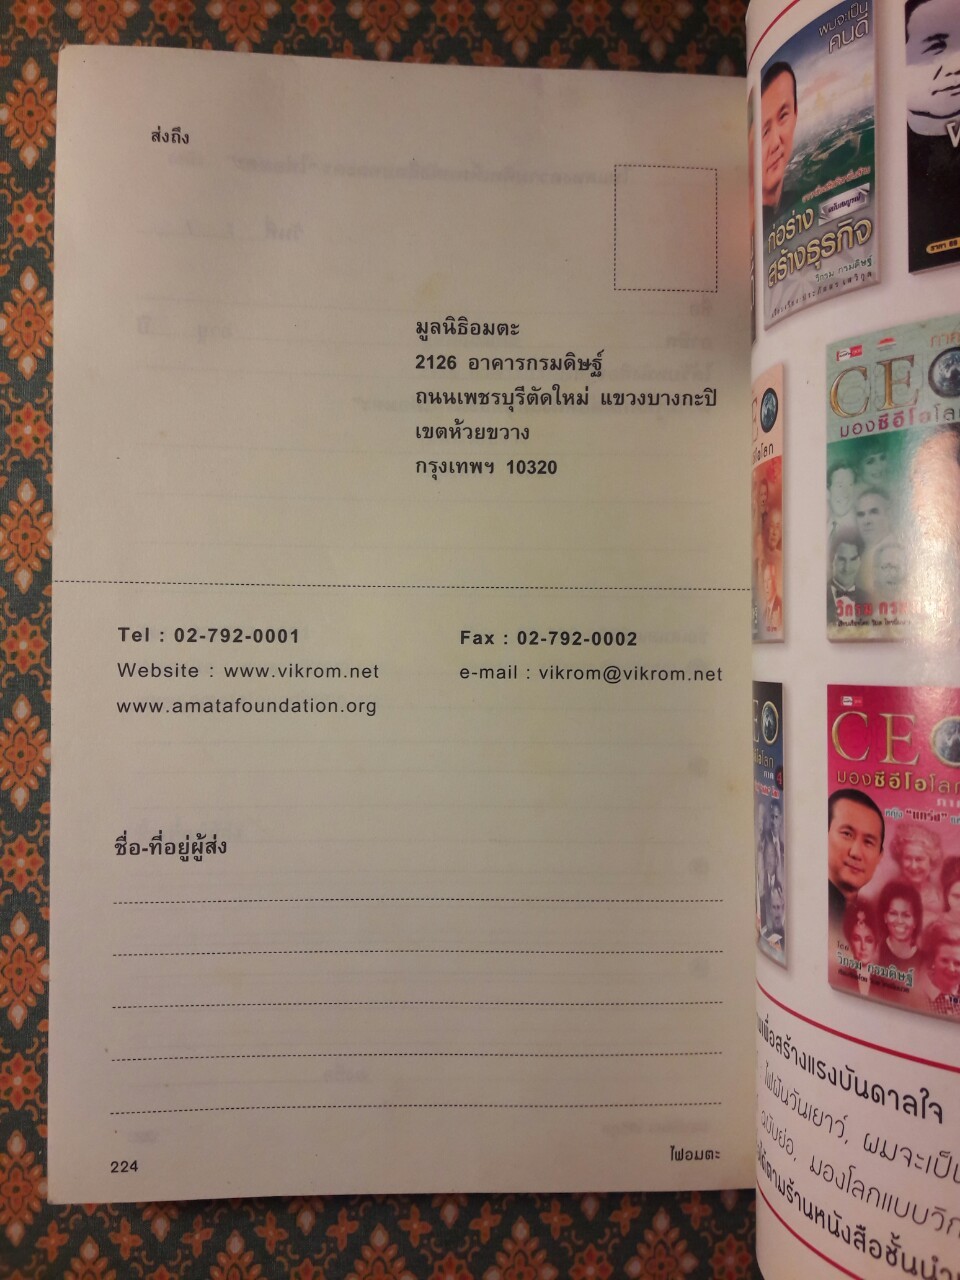 ส่งถึง
มูลนิธิอมตะ
2126 อาคารกรมดิษฐ์
ถนนเพชรบุรีตัดใหม่ แขวงบางกะปิ
เขตห้วยขวาง
กรุงเทพฯ 10320
Tel : 02-792-0001
Fax : 02-792-0002
Website : www.vikrom.net
e-mail : vikrom@vikrom.net
www.amatafoundation.org
ชื่อ-ที่อยู่ผู้ส่ง
224
ไฟอมตะ
ผมจะเป็น
คนดี
ก่อร่าง
สร้างธุรกิจ
วิกรม กรมดิษฐ์
CEO
มองซีอีโอโลก
วิกรม
CEO
มองซีอีโอโลก
วิกรม กรมดิษฐ์
เพื่อสร้างแรงบันดาลใจ
ไฟฝันวันเยาว์, ผมจะเป็น
ฉบับย่อ, มองโลกแบบวิก
ได้ตามร้านหนังสือชั้นนำ